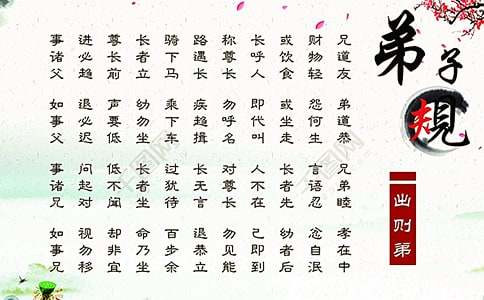 弟子規
出则弟
兄道友 弟道恭 兄弟睦 孝在中
财物轻 怨何生 言语忍 忿自泯
或饮食 或坐走 长者先 幼者后
长呼人 即代叫 人不在 己即到
称尊长 勿呼名 对尊长 勿见能
路遇长 疾趋揖 长无言 退恭立
骑下马 乘下车 过犹待 百步余
长者立 幼勿坐 长者坐 命乃坐
尊长前 声要低 低不闻 却非宜
进必趋 退必迟 问起对 视勿移
事诸父 如事父 事诸兄 如事兄